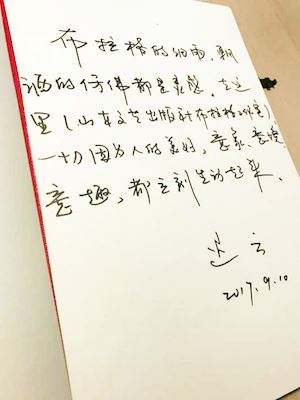 布拉格的细雨,飘
洒的仿佛都是灵感。在这
里(山东文艺出版社布拉格
一切因为人的美好,意象、意境
意趣,都立刻生动起来。
迟云
2017.9.10